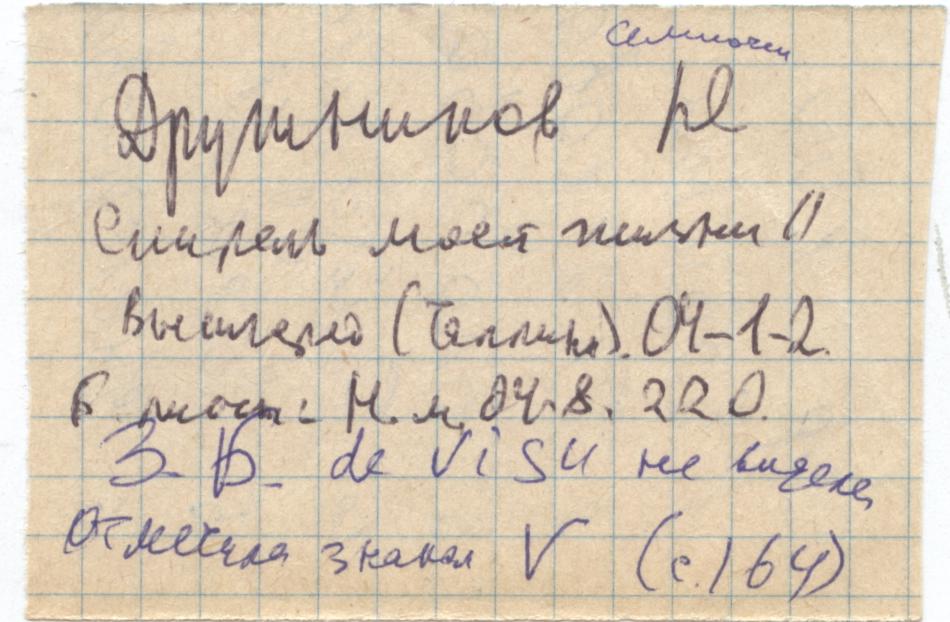 Семиочки
Дружников Ю
Спирель моей жизни //
Вышгород (Таллинн). 04-1-2.
В : Н.м. 04.8. 220.
З.Б. de visu не видела,
Отмечена знаком V (с.164)